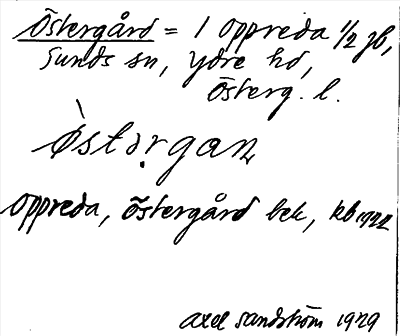 Östergård = 1 Oppreda 1/2 gb,
Sunds sn, Ydre hd,
Österg. l.
Oppreda, Östergård bek, kb 1922
Axel Sandström 1929